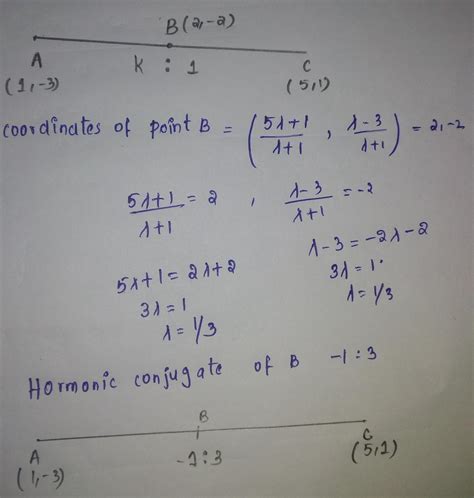 B(2,-2)
A K : 1 C
(1,-3) (5,1)
coordinates of point B = (5λ+1/λ+1 , λ-3/λ+1) = 2,-2
5λ+1/λ+1 = 2 , λ-3/λ+1 = -2
λ-3 = -2λ-2
5λ+1 = 2λ+2 3λ = 1
3λ = 1 λ = 1/3
λ = 1/3
Hormonic conjugate of B -1:3
B
A -1:3 C
(1,-3) (5,1)